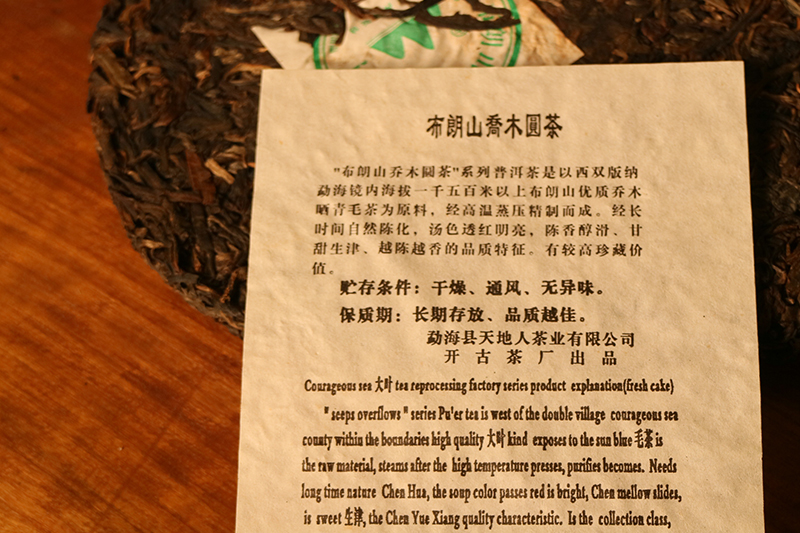 布朗山喬木圓茶
"布朗山乔木圆茶"系列普洱茶是以西双版纳
勐海镜内海拔一千五百米以上布朗山优质乔木
晒青毛茶为原料，经高温蒸压精制而成。经长
时间自然陈化，汤色透红明亮，陈香醇滑、甘
甜生津、越陈越香的品质特征。有较高珍藏价
值。
贮存条件：干燥、通风、无异味。
保质期：长期存放、品质越佳。
勐海县天地人茶业有限公司
开古茶厂出品
Courageous sea 大叶 tea reprocessing factory series product explanation(fresh cake)
" sceps overflows " series Pu'er tea is west of the double village courageous sea
county within the boundaries high quality 大叶 kind exposes to the sun blue 毛茶 is
the raw material, steams after the high temperature presses, purifies becomes. Needs
long time nature Chen Hua, the soup color passes red is bright, Chen mellow slides,
is sweet 生津, the Chen Yue Xiang quality characteristic. Is the collection class,